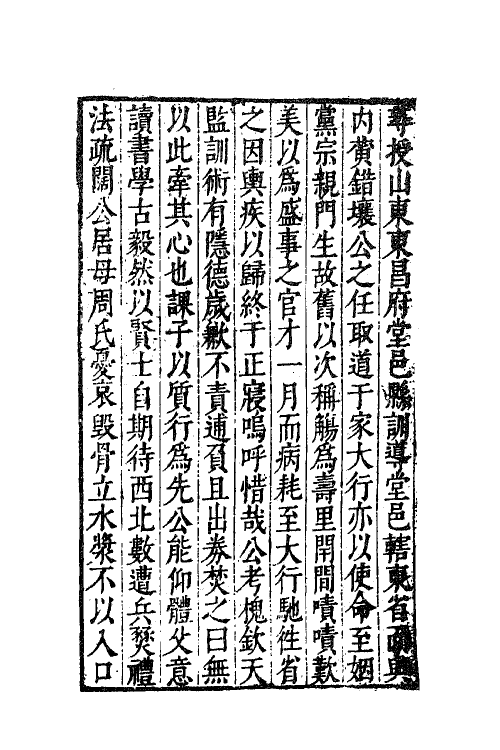 尋授山東東昌府堂邑縣訓導堂邑轄東省疆與
内黄錯壤公之任取道于家大行亦以使命至姻
黨宗親門生故舊以次稱觴為壽里閈間嘖嘖歎
美以為盛事之官才一月而病耗至大行馳徃省
之因輿疾以歸終于正寢嗚呼惜哉公考槐欽天
監訓術有隱德歲歉不責逋負且出券焚之曰無
以此牽其心也課子以質行為先公能仰體父意
讀書學古毅然以賢士自期待西北數遭兵燹禮
法疏闊公居母周氏憂哀毀骨立水漿不以入口